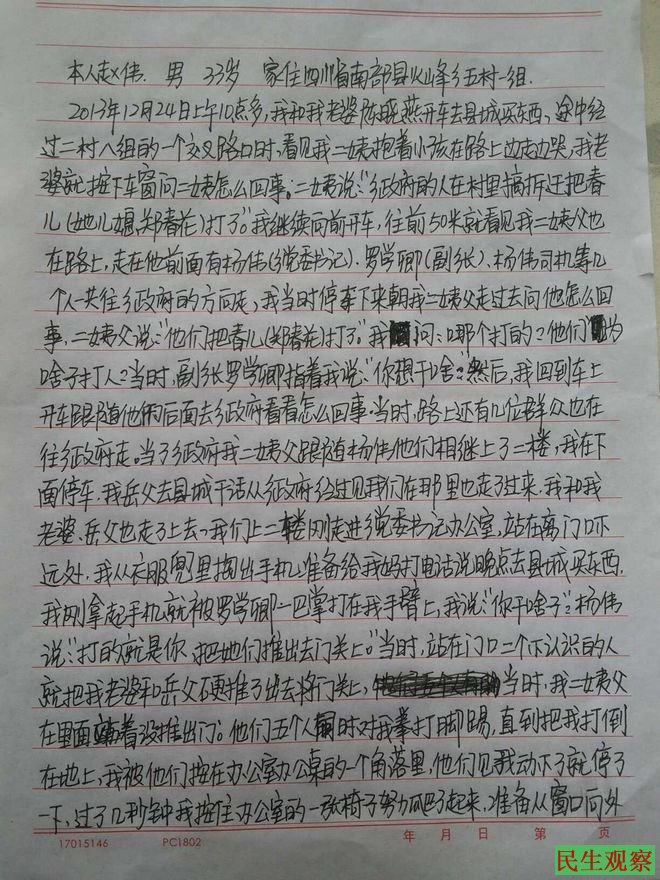 本人赵伟. 男 33岁 家住四川省南部县火峰乡五村一组.
2013年12月24日上午10点多,我和我老婆陈晓燕开车去县城买东西,途中经
过二村八组的一个交叉路口时,看见我二姨抱着小孩在路上边走边哭,我老
婆就按下车窗问二姨怎么回事。二姨说:"乡政府的人在村里搞拆迁把春
儿(她儿媳,郑春花)打了。"我继续向前开车,往前50米就看见我二姨父也
在路上,走在他前面有杨伟(乡党委书记).罗学卿(副乡长).杨伟司机等几
个人一共往乡政府的方向走,我当时停车下来朝我二姨父走过去问他怎么回
事,二姨父说:"他们把春儿(郑春花)打了。"我问:"哪个打的?他们为
啥子打人?"当时,副乡长罗学卿指着我说:"你想干啥?"然后,我回到车上
开车跟随他们后面去乡政府看看怎么回事.当时,路上还有几位群众也在
往乡政府走。当了乡政府我二姨父跟随杨伟他们相继上了二楼,我在下
面停车.我岳父去县城干活从乡政府经过见我们在那里也走了过来.我和我
老婆.岳父也走了上去、我们上二楼刚走进乡党委书记办公室,站在离门口不
远处.我从衣服兜里掏出手机准备给我妈打电话说晚点去县城买东西.
我刚拿起手机就被罗学卿一巴掌打在我手臂上,我说:"你干啥子?"杨伟
说:"打的就是你、把她们推出去门关上。"当时,站在门口二个不认识的人
就把我老婆和岳父硬推了出去将门关上,当时,我二姨父
在里面站着没推出门。他们五个人同时对我拳打脚踢,直到把我打倒
在地上,我被他们按在办公室办公桌的一个角落里,他们见我动不了就停了
一下,过了几秒钟我按住办公室的一张椅子努力爬了起来,准备从窗口向外
17015146 PC1802 年 月 日 第 页
民生观察